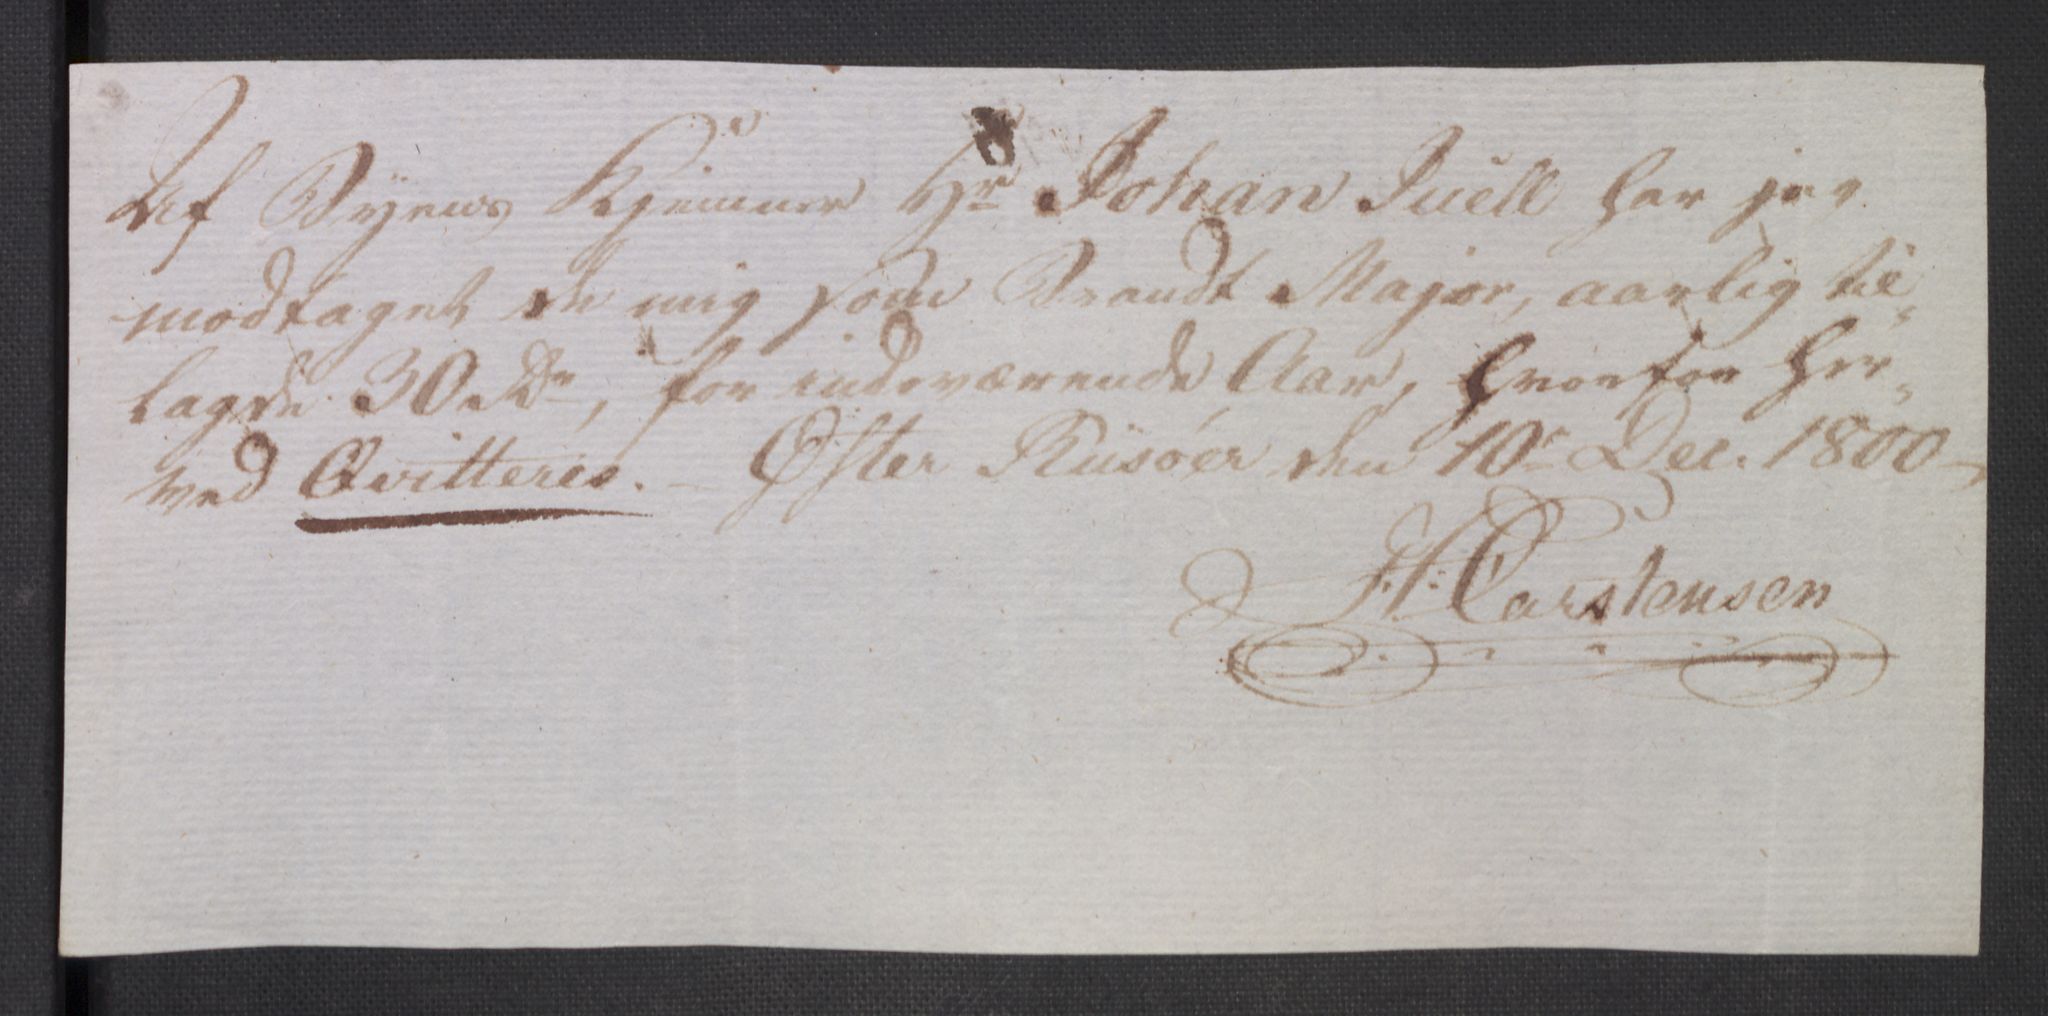 Af Byens Kjemner Hr Johan Juell har jeg
modtaget de mig som Brandt Major, aarlig til-
lagde 30 Rdr, for indeværende Aar, hvorfor her-
ved Qvitteres. - Øster Riisöer den 10de Dec. 1800
H. Carstensen